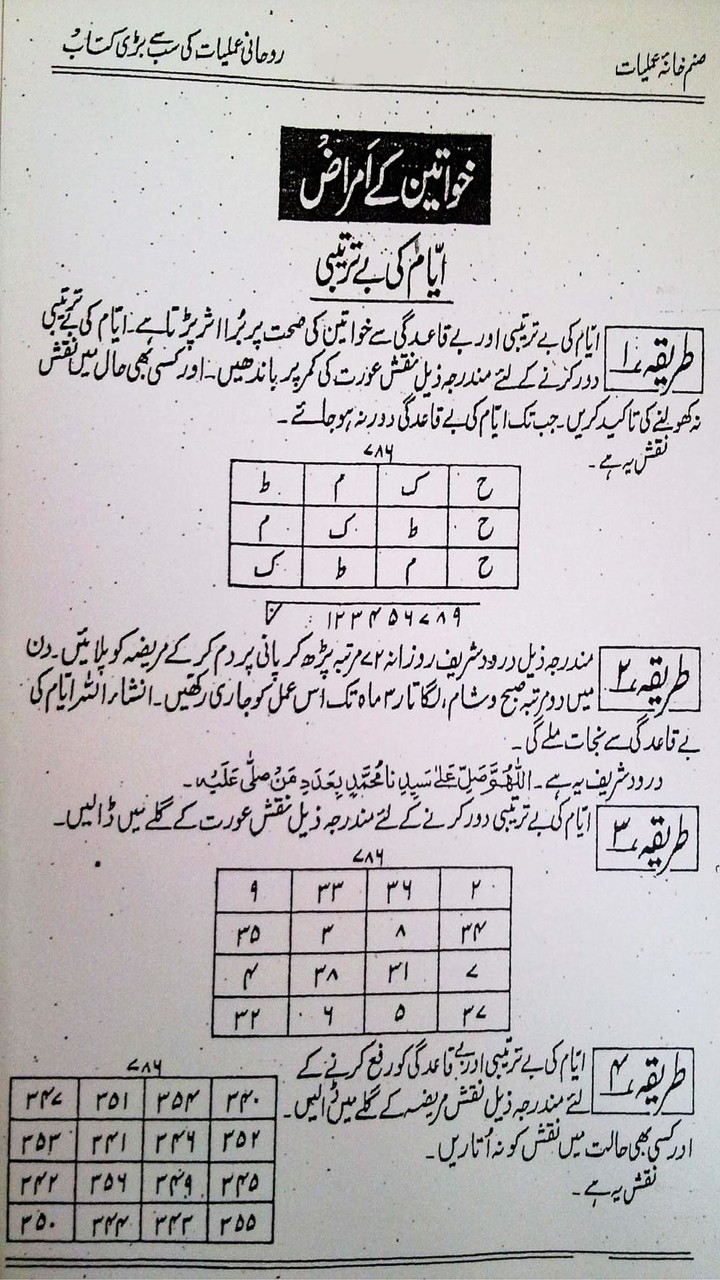 صنم خانۂ عملیات
روحانی عملیات کی سب سے بڑی کتاب
خواتین کے اَمراض
ایّام کی بے ترتیبی
طریقہ ۱
ایّام کی بے ترتیبی اور بے قاعدگی سے خواتین کی صحت پر بُرا اثر پڑتا ہے۔ ایّام کی بے ترتیبی
دور کرنے کے لئے مندرجہ ذیل نقش عورت کی کمر پر باندھیں۔ اور کسی بھی حال میں نقش
نہ کھولنے کی تاکید کریں۔ جب تک ایّام کی بے قاعدگی دور نہ ہو جائے۔
نقش یہ ہے۔
۷۸۶
ح ک م ط
ح ط ک م
ح م ط ک
۱۲۳۴۵۶۷۸۹
طریقہ ۲
مندرجہ ذیل درود شریف روزانہ ۷۲ مرتبہ پڑھ کر پانی پر دم کر کے مریضہ کو پلائیں۔ دن
میں دو مرتبہ صبح و شام، لگاتار ۳ ماہ تک اس عمل کو جاری رکھیں۔ انشاء اللہ ایام کی
بے قاعدگی سے نجات ملے گی۔
درود شریف یہ ہے۔ اَللّٰهُمَّ صَلِّ عَلٰے سَيِّدِنَا مُحَمَّدٍ بِعَدَدِ مَنْ صَلّٰى عَلَيْهِ۔
طریقہ ۳
ایّام کی بے ترتیبی دور کرنے کے لئے مندرجہ ذیل نقش عورت کے گلے میں ڈالیں۔
۷۸۶
۲ ۳۶ ۳۳ ۹
۳۴ ۸ ۳ ۳۵
۷ ۳۱ ۳۸ ۴
۳۷ ۵ ۶ ۳۲
طریقہ ۴
ایّام کی بے ترتیبی اور بے قاعدگی کو رفع کرنے کے
لئے مندرجہ ذیل نقش مریضہ کے گلے میں ڈالیں۔
اور کسی بھی حالت میں نقش کو نہ اُتاریں۔
نقش یہ ہے۔
۷۸۶
۳۴۰ ۳۵۴ ۳۵۱ ۳۴۷
۳۵۲ ۳۴۶ ۳۴۱ ۳۵۳
۳۴۵ ۳۴۹ ۳۵۶ ۳۴۲
۳۵۵ ۳۴۳ ۳۴۴ ۳۵۰